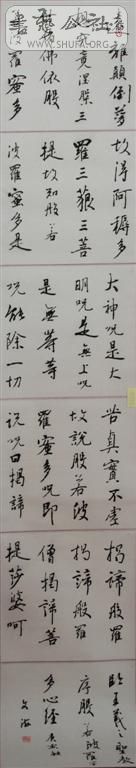 離顛倒夢
究竟涅槃三
諸佛依般
羅蜜多
故得阿耨多
羅三藐三菩
提故知般若
波羅蜜多是
大神咒是大
明咒是無上咒
是無等等
咒能除一切
苦真實不虛
故說般若波
羅蜜多咒即
說咒曰揭諦
揭諦般羅
揭諦般羅
僧揭諦菩
提莎婆呵
臨王羲之聖教
序般若波羅
多心經